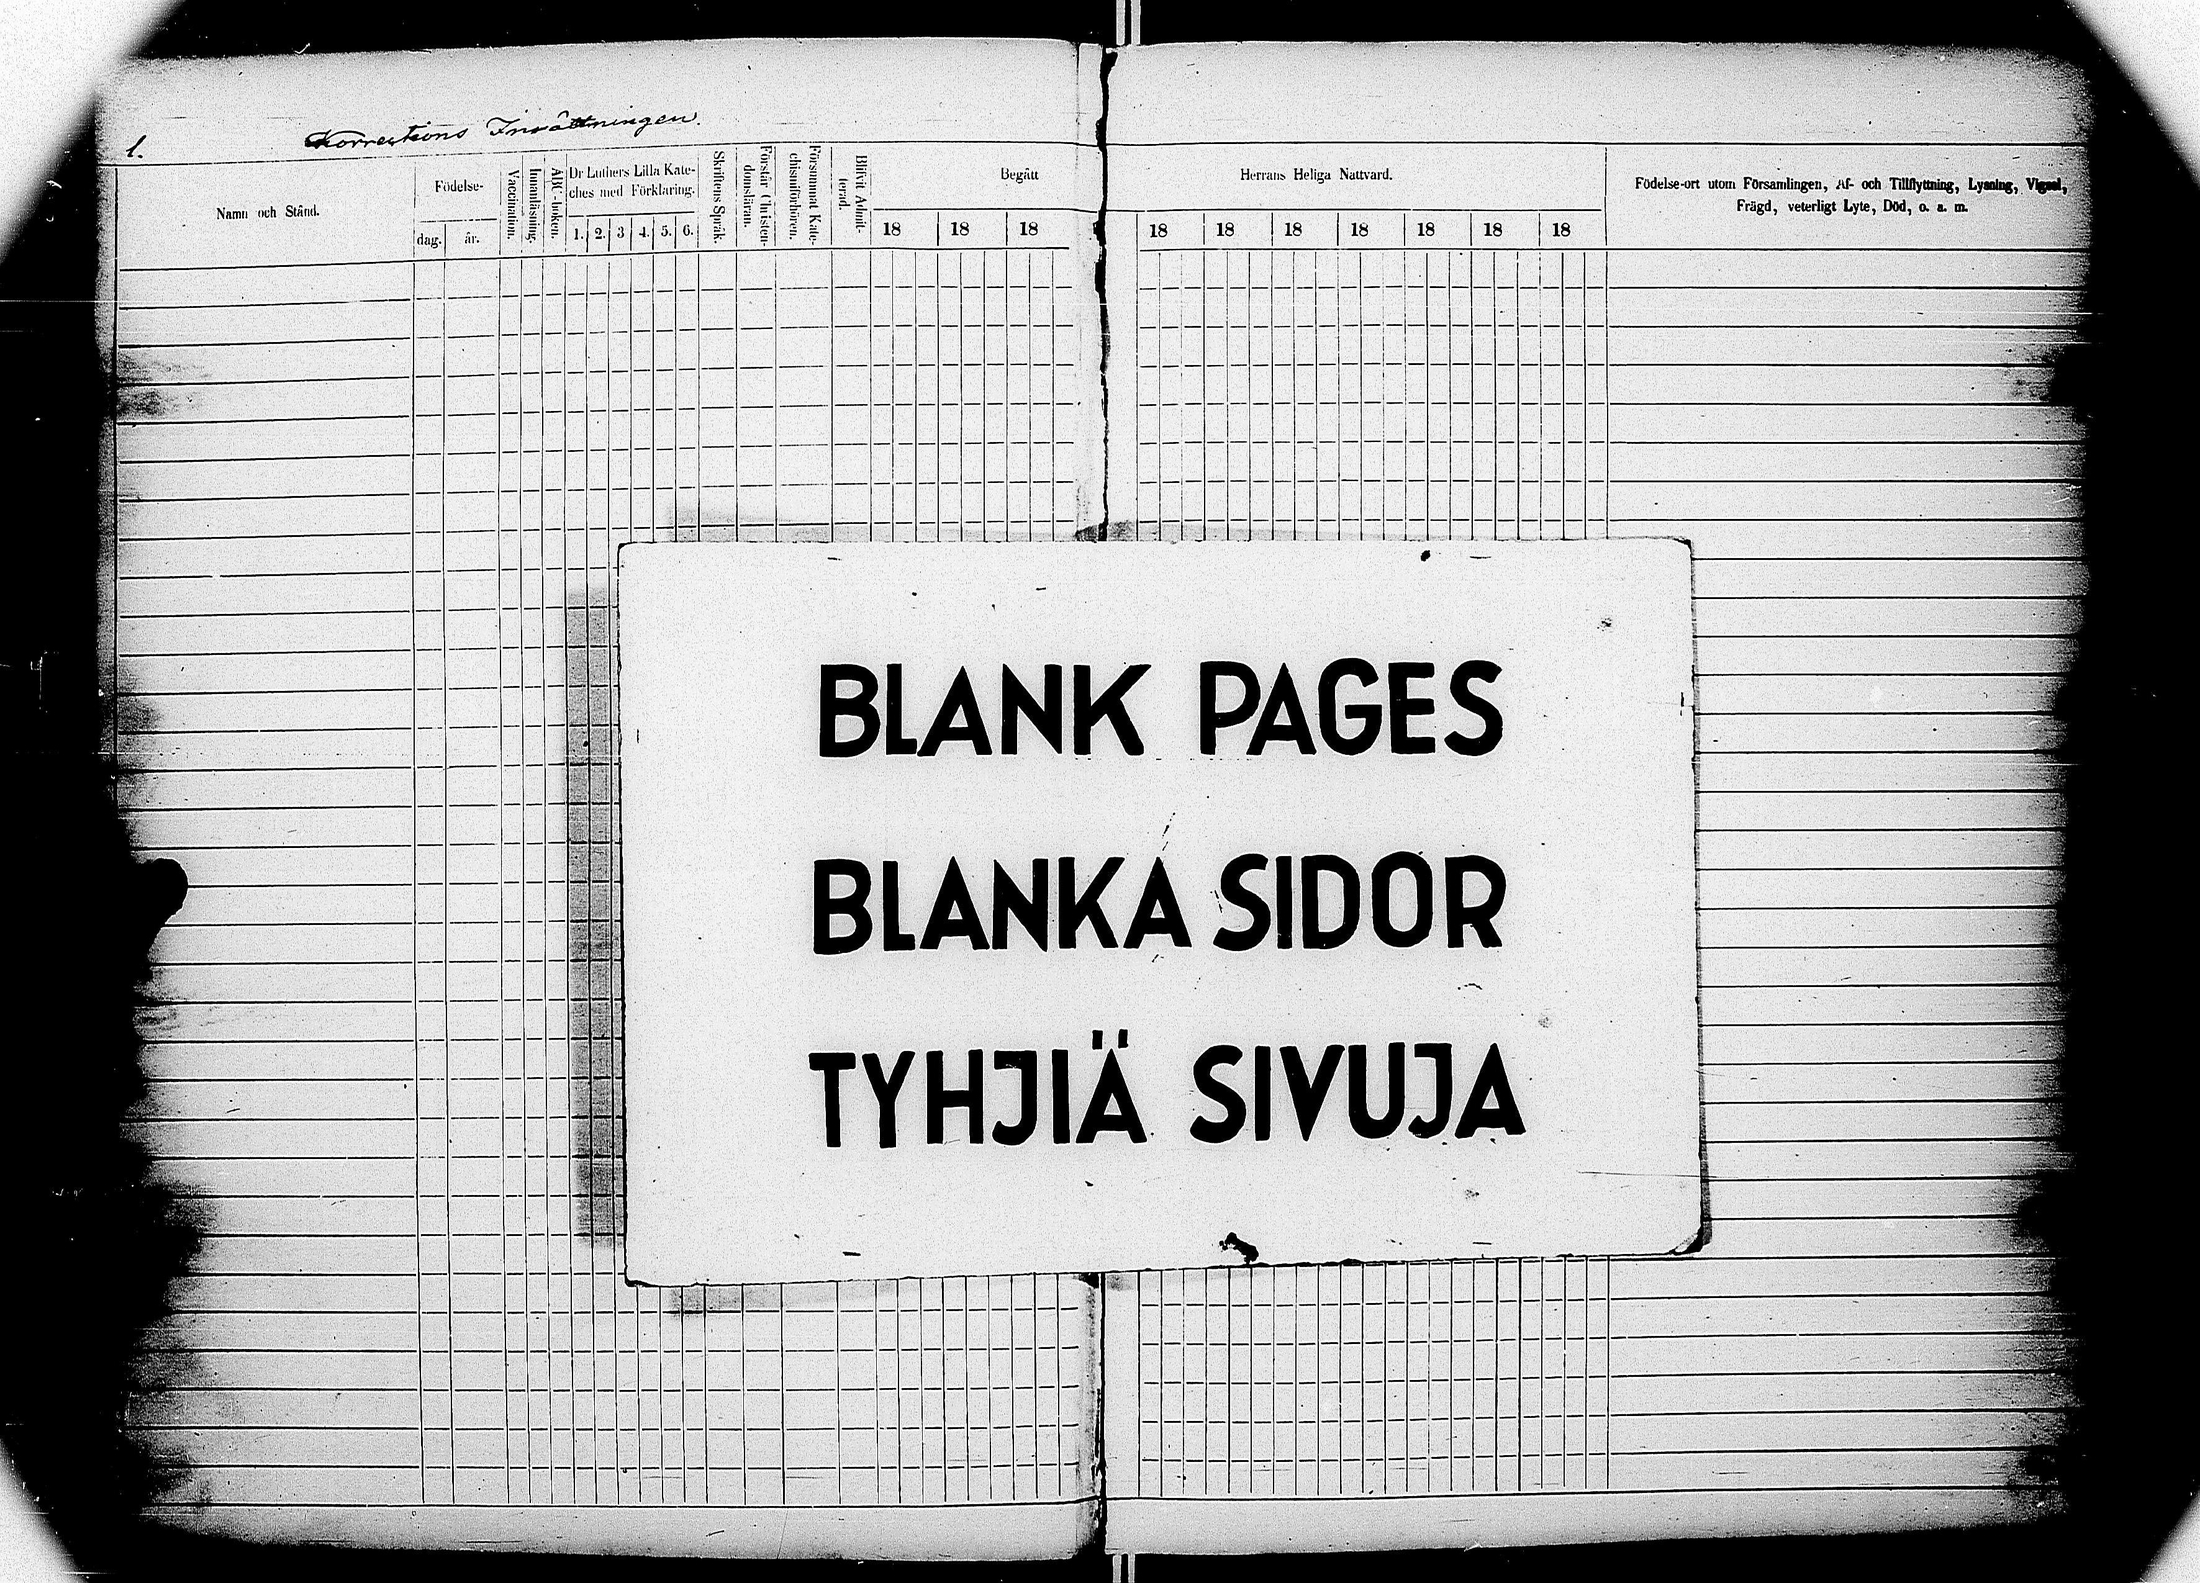 1. Korrections Inrättningen.
Namn och Stånd.
Födelse-
dag. år.
Vaccination.
Innanläsning.
ABC-boken.
Dr Luthers Lilla Kate-
ches med Förklaring.
1. 2. 3 4. 5. 6.
Skriftens Språk.
Förstår Christen-
domsläran.
Försummat Kate-
chismiförhören.
Blifvit Admit-
terad.
Begått
18 18 18
Herrans Heliga Nattvard.
18 18 18 18 18 18 18
Födelse-ort utom Församlingen, Af- och Tillflyttning, Lysning, Vigsel,
Frägd, veterligt Lyte, Död, o. s. m.
BLANK PAGES
BLANKA SIDOR
TYHJIÄ SIVUJA